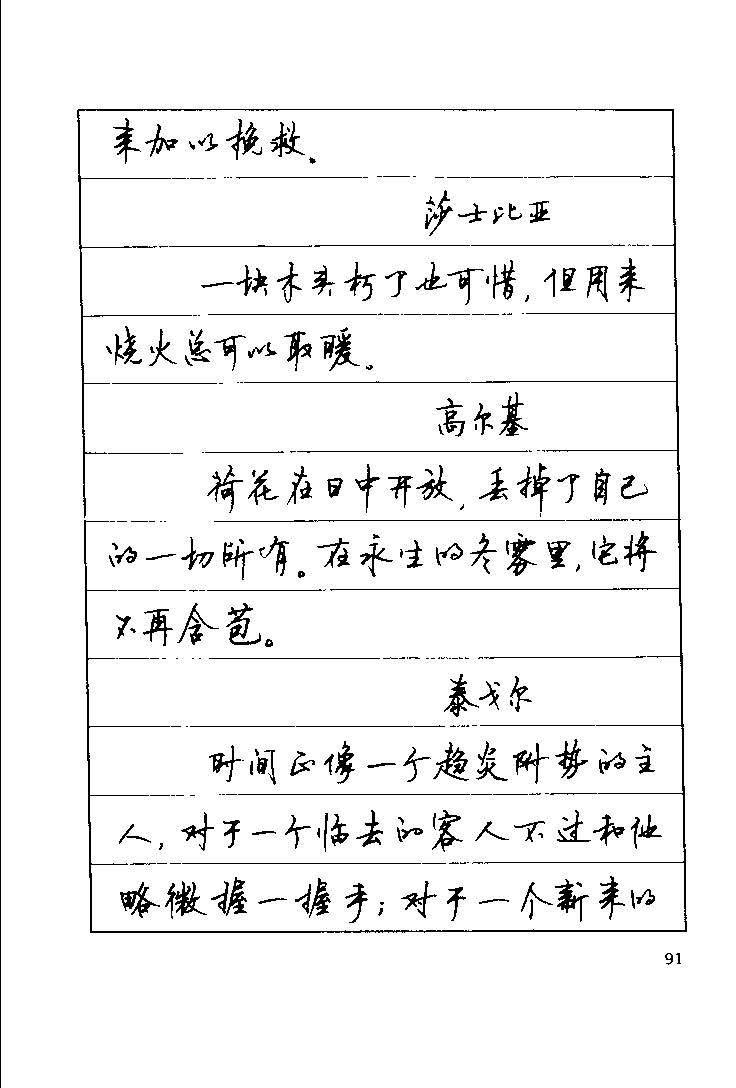 来加以挽救。
莎士比亚
一块木头朽了也可惜，但用来
烧火总可以取暖。
高尔基
荷花在日中开放，丢掉了自己
的一切所有。在永生的冬雾里，它将
不再含苞。
泰戈尔
时间正像一个趋炎附势的主
人，对于一个临去的客人不过和他
略微握一握手；对于一个新来的
91